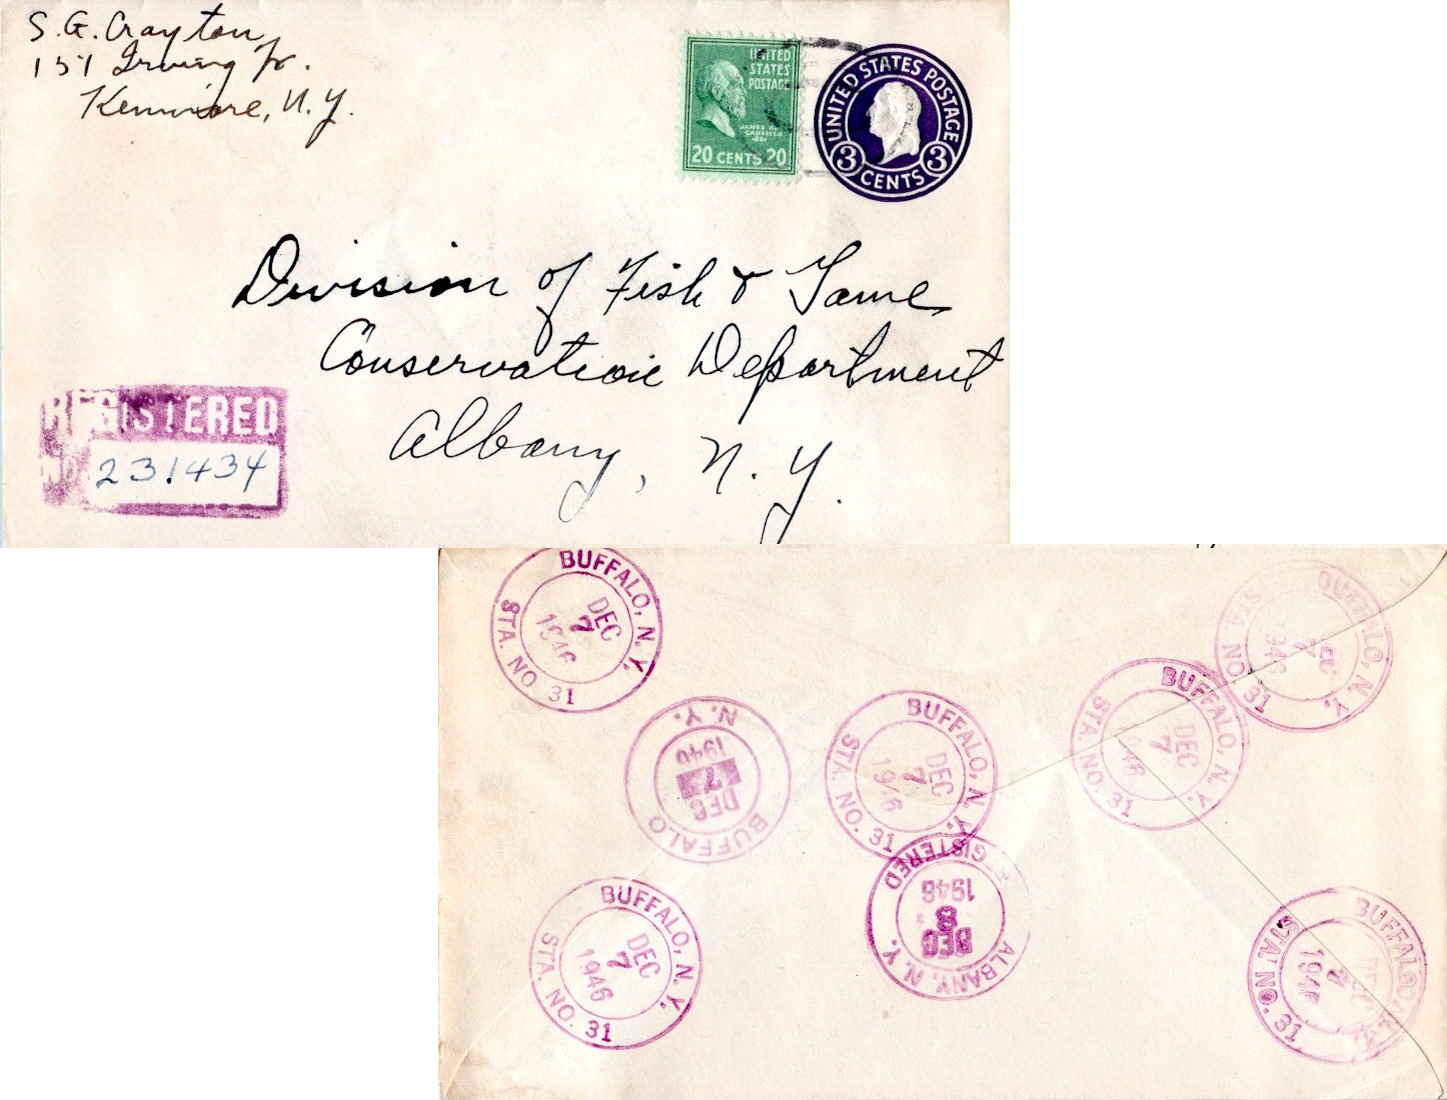 S. G. Crayton
151 Irving Tr.
Kenmore, N. Y.
UNITED
STATES
POSTAGE
JAMES A.
GARFIELD
20 CENTS 20
UNITED STATES POSTAGE
3 CENTS 3
Division of Fish & Game
Conservation Department
Albany, N. Y.
REGISTERED
NO.
231434
BUFFALO, N. Y.
DEC
7
1946
STA. NO. 31
BUFFALO, N. Y.
DEC
7
1946
STA. NO. 31
BUFFALO
DEC
7
1946
N. Y.
BUFFALO, N. Y.
DEC
7
1946
STA. NO. 31
BUFFALO, N. Y.
DEC
7
STA. NO. 31
REGISTERED
1946
8
DEC
ALBANY, N. Y.
BUFFALO, N. Y.
DEC
7
1946
STA. NO. 31
BUFFALO, N. Y.
DEC
7
1946
STA. NO. 31